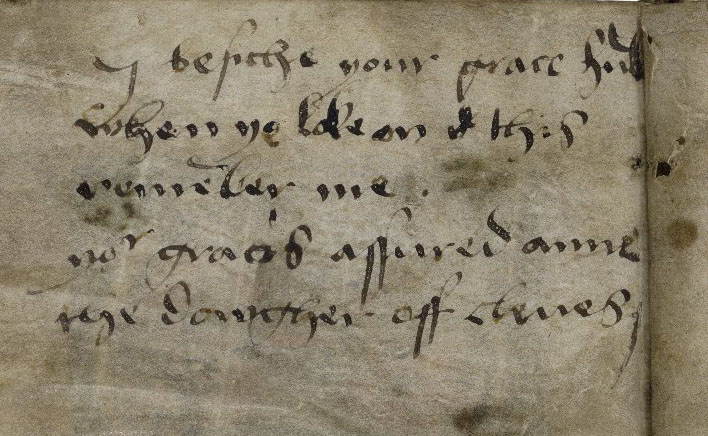 I besiche your grace hūble
when ye loke on this
remēber me .
yor gracis assured anne
the dowgher off cleves